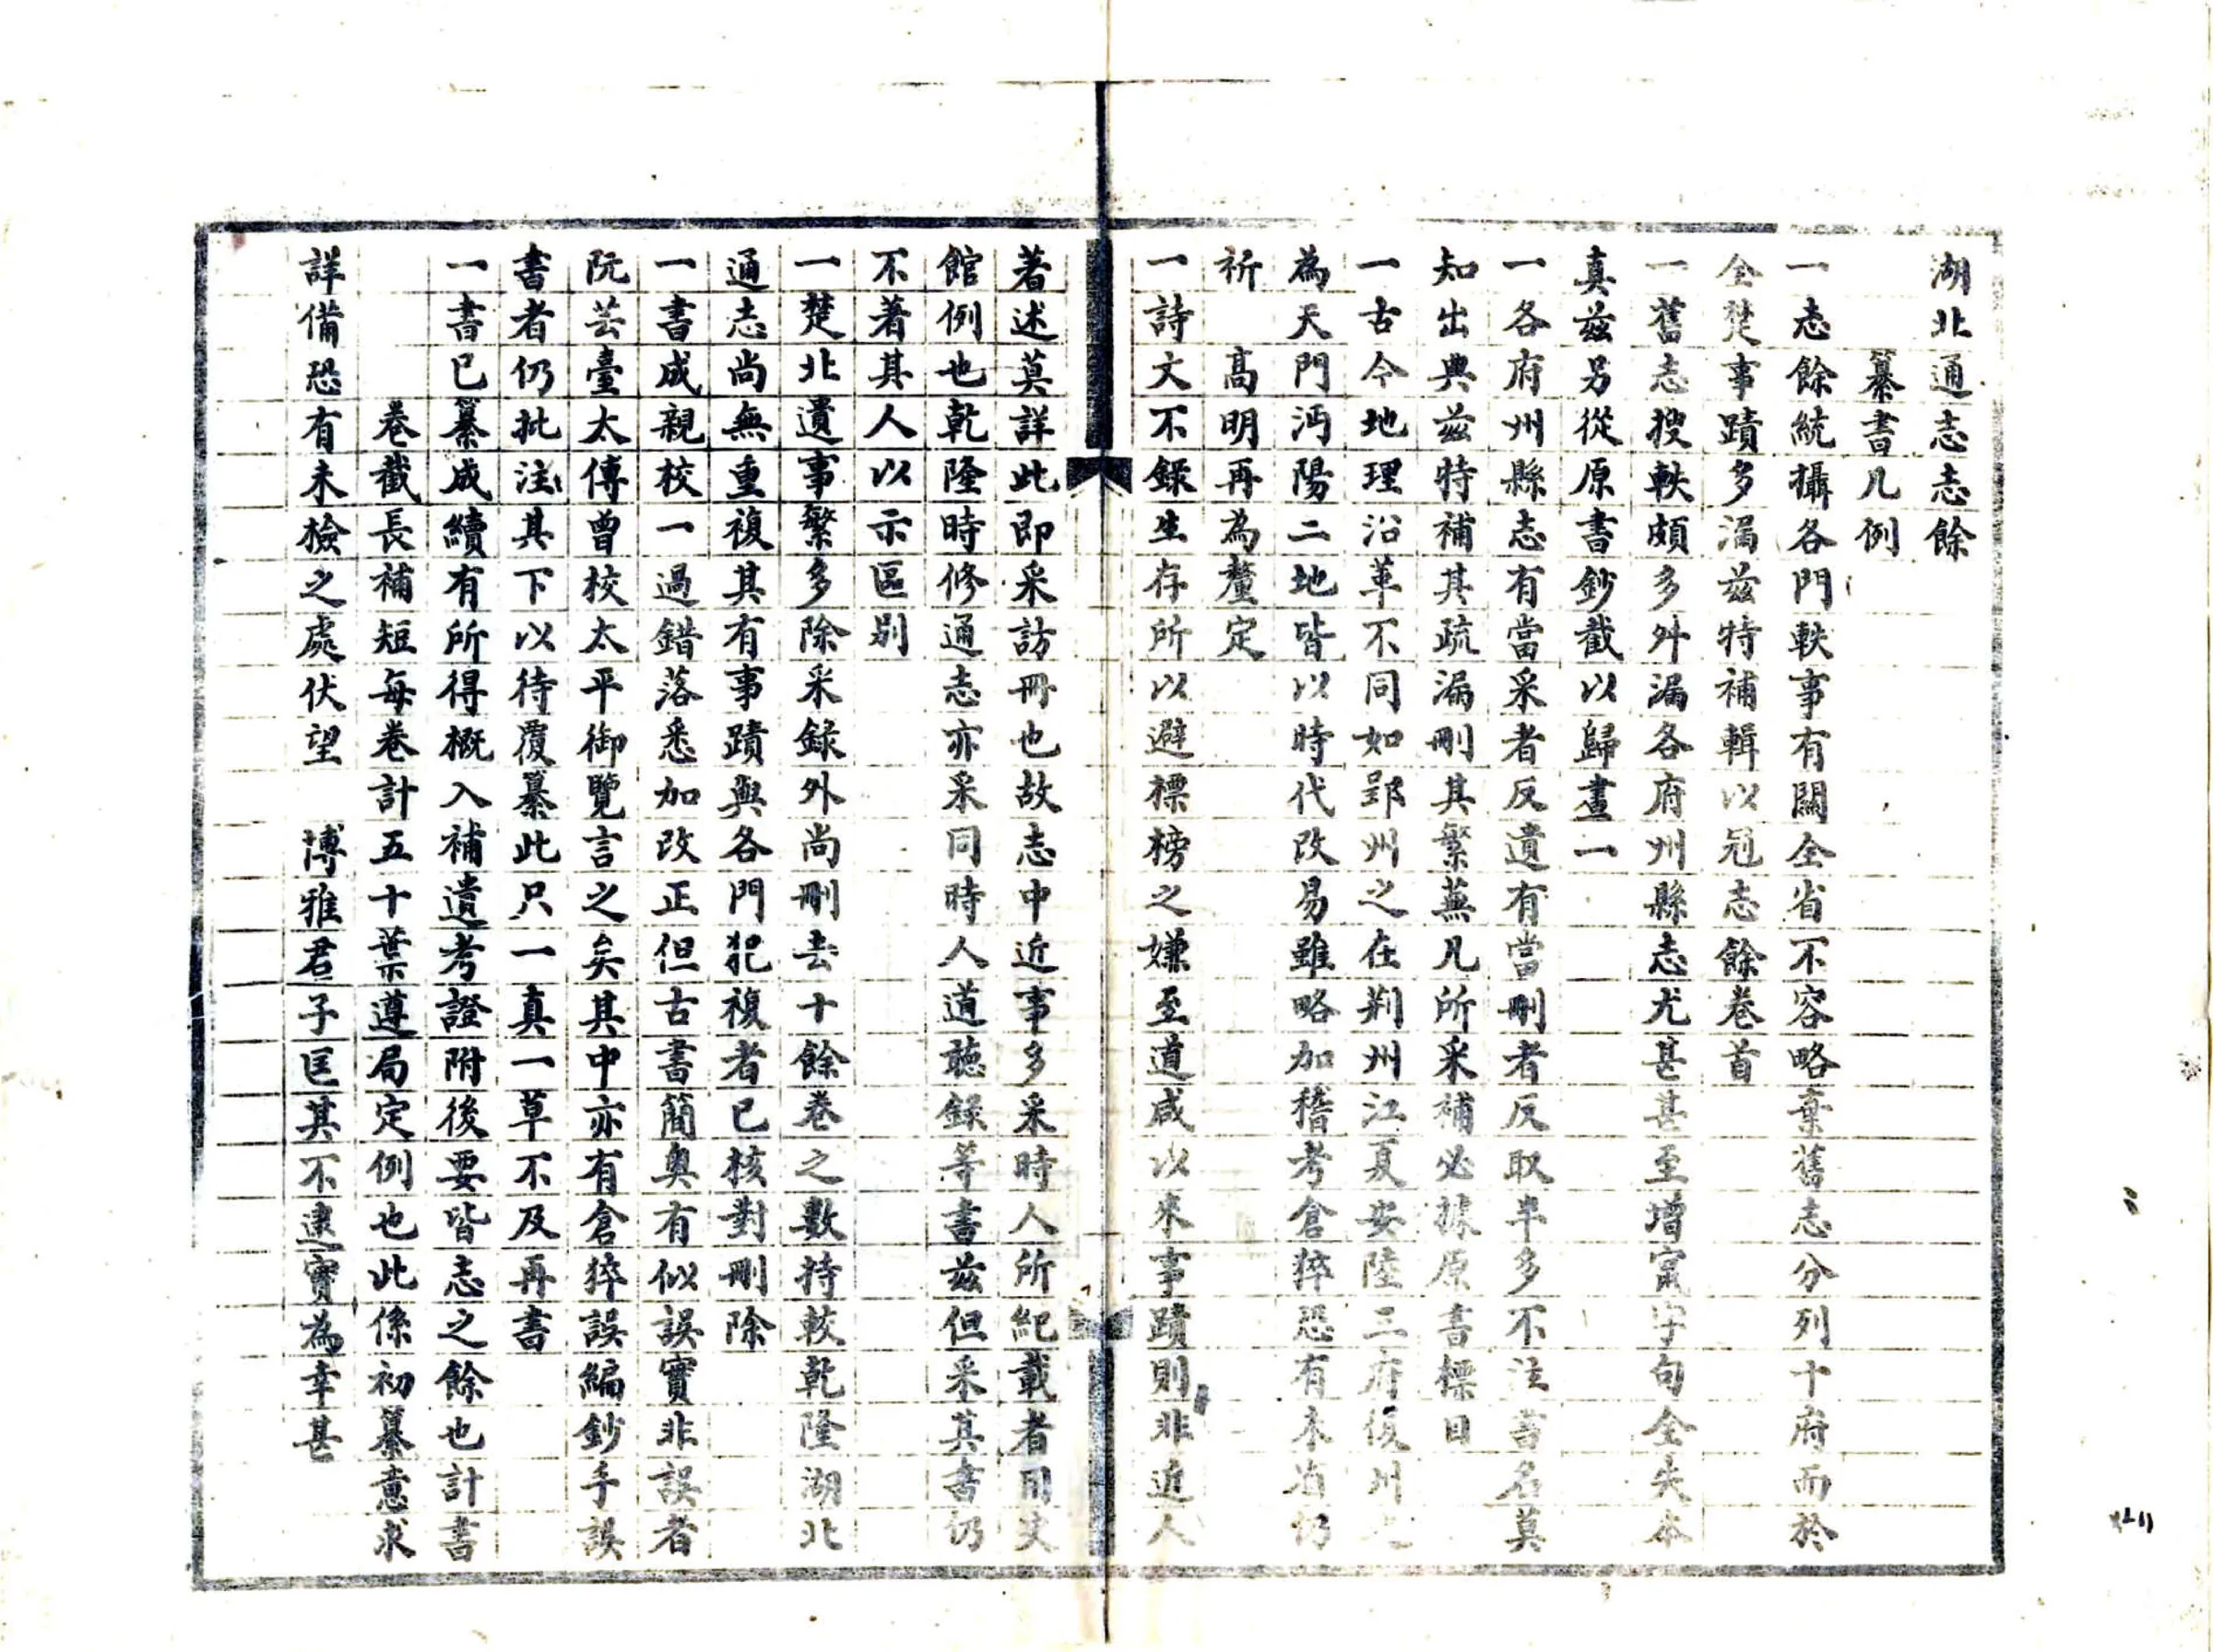 湖北通志志餘
纂書凡例
一志餘統攝各門軼事有關全省不容略棄舊志分列十府而於
全楚事蹟多漏茲特補輯以冠志餘卷首
一舊志搜軼頗多外漏各府州縣志尤甚甚至增竄字句全失本
真茲另從原書鈔截以歸畫一
一各府州縣志有當采者反遺有當刪者反取半多不注書名莫
知出典茲特補其疏漏刪其繁蕪凡所采補必據原書標目
一古今地理沿革不同如郢州之在荆州江夏安陸三府復州之
為天門沔陽二地皆以時代改易雖略加稽考倉猝恐有未省仍
祈 高明再為釐定
一詩文不錄生存所以避標榜之嫌至道咸以來事蹟則非近人
著述莫詳此即采訪冊也故志中近事多采時人所紀載者用史
館例也乾隆時修通志亦采同時人道聽錄等書茲但采其書仍
不著其人以示區別
一楚北遺事繁多除采録外尚刪去十餘卷之數持較乾隆湖北
通志尚無重複其有事蹟與各門犯複者已核對刪除
一書成親校一過錯落悉加改正但古書簡奧有似誤實非誤者
阮芸臺太傅曾校太平御覽言之矣其中亦有倉猝誤編鈔手誤
書者仍批注其下以待覆纂此只一真一草不及再書
一書已纂成續有所得概入補遺考證附後要皆志之餘也計書
卷截長補短每卷計五十葉遵局定例也此係初纂意求
詳備恐有未檢之處伏望 博雅君子匡其不逮實為幸甚